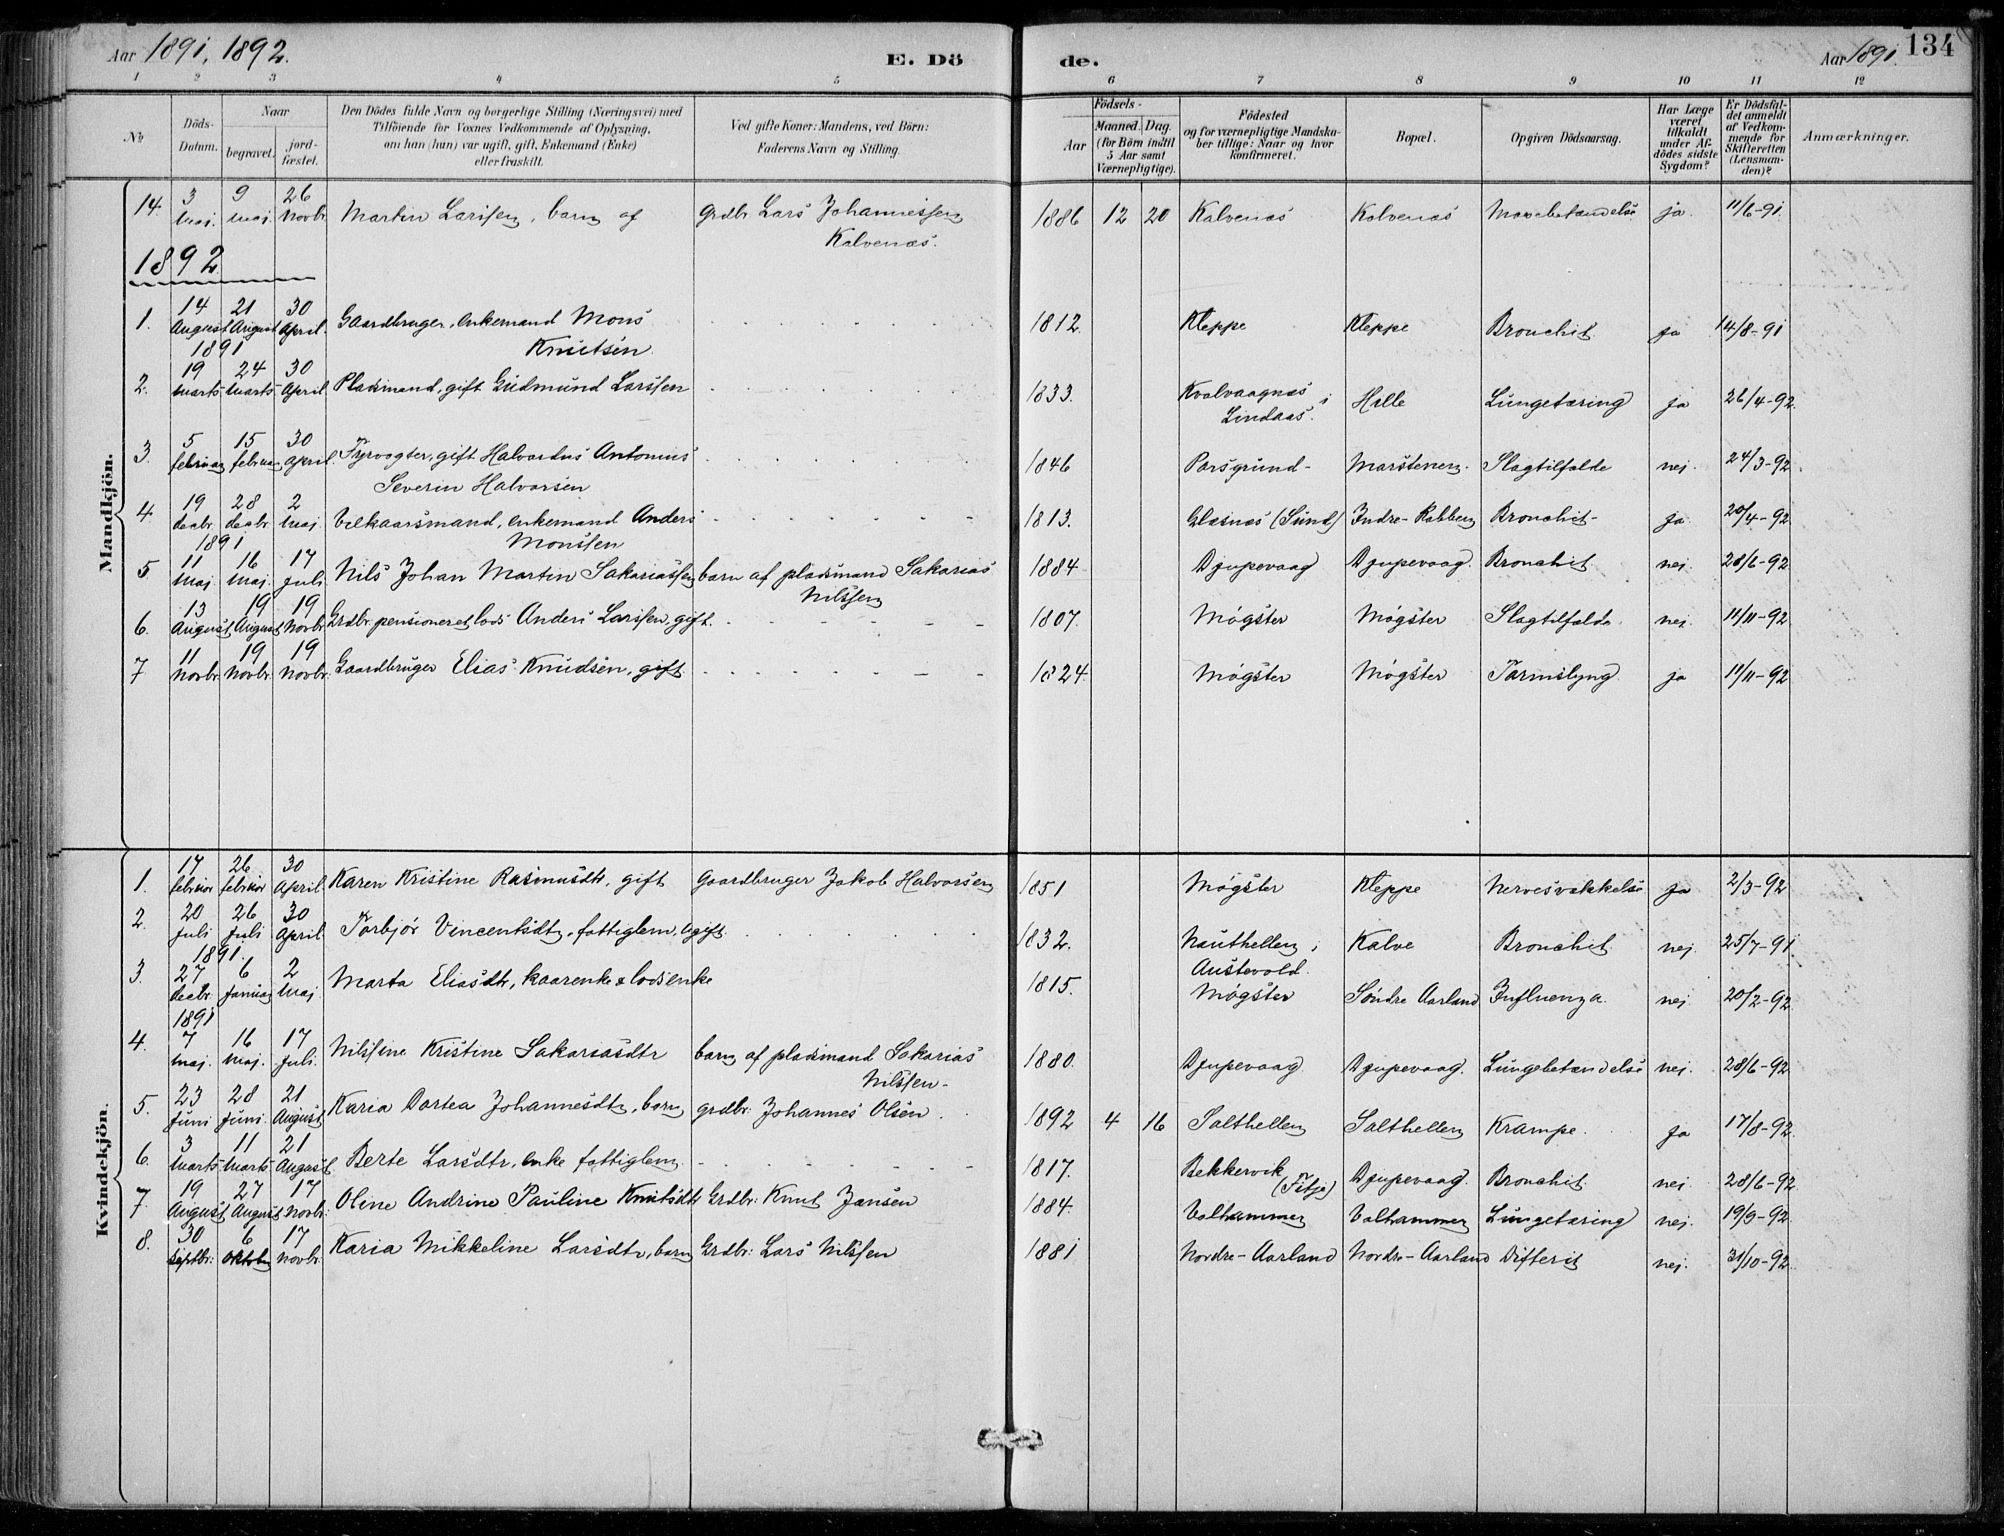 Aar 1891, 1892.
E. Dö de.
Aar 1891.
134
1 2 3 4 5 6 7 8 9 10 11 12
№
Döds-Datum.
Naar
begravet.
jordfæstet.
Den Dödes fulde Navn og borgerlige Stilling (Næringsvei) med
Tilföiende for Voxnes Vedkommende af Oplysning,
om han (hun) var ugift, gift, Enkemand (Enke)
eller fraskilt.
Ved gifte Koner: Mandens, ved Börn:
Faderens Navn og Stilling.
Födsels-
Aar
Maaned. Dag.
(for Börn indtil
5 Aar samt
Værnepligtige).
Födested
og for værnepligtige Mandska-
ber tillige: Naar og hvor
konfirmeret.
Bopæl.
Opgiven Dödsaarsag.
Har Læge
været
tilkaldt
under Af-
dödes sidste
Sygdom?
Er Dödsfal-
det anmeldt
af Vedkom-
mende for
Skifteretten
(Lensman-
den)?
Anmærkninger.
Mandkjön.
14. 3 maj. 9 maj. 26 Novbr. Martin Larssen, barn af grdbr Lars Johannessen Kalvenæs. 1886 12 20 Kalvenæs Kalvenæs Mavebetændelse ja. 11/6-91.
1892
1. 14 August 1891 21 August 30 April. Gaardbruger, enkemand Mons Knutsen. 1812. Kleppe Kleppe Bronchit. ja 14/8-91
2. 19 Marts 24 Marts 30 April. Pladsmand, gift Gudmund Larssen 1833. Kvalvaagnæs i Lindaas. Hille Lungetæring ja 26/4-92.
3. 5 februar 15 februar 30 April. Fyrvogter, gift Halvardus Antonius Severin Halvorsen 1846 Porsgrund- Marstenen. Slagtilfælde nej. 24/3-92.
4. 19 decbr. 1891 28 decbr. 2 Maj. Vilkaarsmand, enkemand Anders Monssen 1813. Glæsnæs (Sund) Indre-Rabben Bronchit- ja. 20/4-92
5 11 Maj 16 Maj. 17 Juli. Nils Johan Martin Sakariassen barn af pladsmand Sakarias Nilssen 1884 Djupevaag Djupevaag. Bronchit nej 28/6-92
6. 13 August 19 August 19 Novbr. Grdbr. pensioneret lods Anders Larssen, gift. 1807. Møgster Møgster Slagtilfælde. nej. 11/11-92
7 11 Novbr. 19 Novbr. 19 Novbr. Gaardbruger Elias Knudsen, gift. 1824. Møgster Møgster Tarmslyng. ja 11/11-92
Kvindekjön.
1. 17 februar 26 februar 30 April Karen Kristine Rasmusdtr, gift Gaardbruger Jakob Halvorsen 1851 Møgster Kleppe Nervesvækkelse ja 2/3-92
2. 20 Juli 1891. 26 Juli 30 April. Torbjør Vincentsdtr, fattiglem, ugift. 1832. Nauthellen i Austevold. Kalve Bronchit. nej. 25/7-91
3. 27 decbr. 1891 6 Januar 2 Maj. Marta Eliasdtr, kaarenke & lodsenke 1815. Møgster Søndre Aarland Influenza. nej. 20/2-92
4. 7 maj. 16 maj. 17 Juli. Nilsine Kristine Sakariasdtr barn af pladsmand Sakarias Nilssen- 1880. Djupevaag Djupevaag. Lungebetændelse nej. 28/6-92
5. 23 Juni 28 Juni. 21 August Karia Dortea Johannesdtr, barn grdbr: Johannes Olsen. 1892 4 16 Salthellen Salthellen Krampe. ja 17/8-92.
6. 3 Marts 11 Marts 21 August. Berte Larsdtr, enke fattiglem. 1817. Bekkervik (Fitje) Djupevaag. Bronchit. nej. 28/6-92
7. 19 August 27 August 17 Novbr: Oline Andrine Pauline Knutsdtr Grdbr: Knut Jansen 1884. Valhammer Valhammer Lungetæring nej. 19/9-92.
8. 30 septbr: 6 oktober 17 Novbr. Karia Mikkeline Larsdtr, barn Grdbr: Lars Nilssen 1881 Nordre-Aarland Nordre-Aarland Difterit nej. 31/10-92.